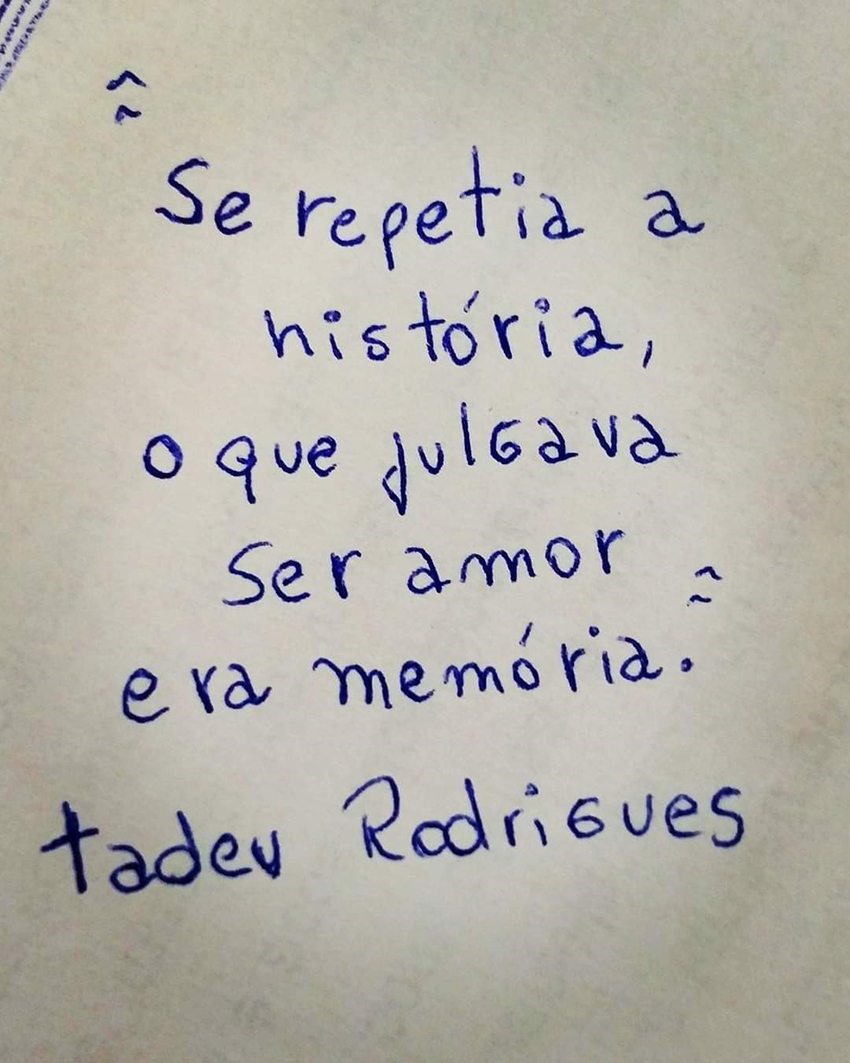 Se repetia a
história,
o que julgava
ser amor
era memória.
tadeu Rodrigues